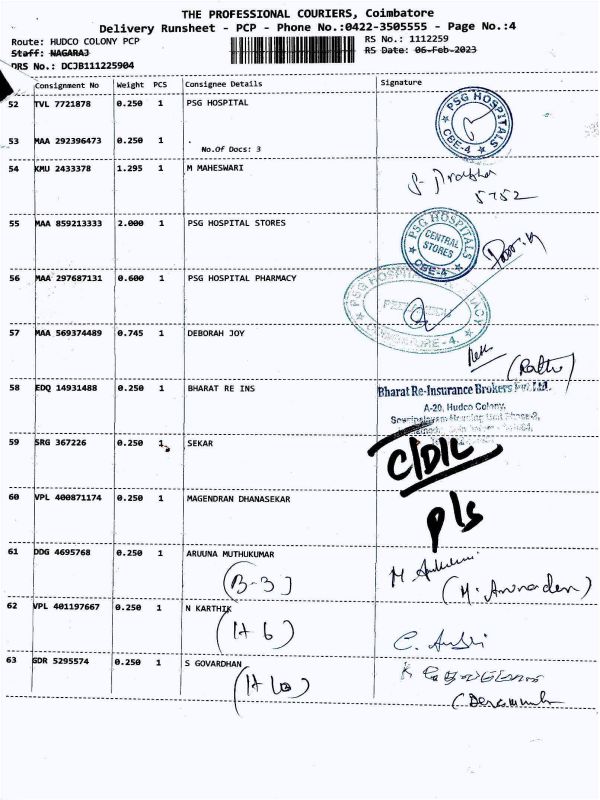 THE PROFESSIONAL COURIERS, Coimbatore
Delivery Runsheet - PCP - Phone No.:0422-3505555 - Page No.:4
Route: HUDCO COLONY PCP
RS No.: 1112259
Staff: NAGARAJ
RS Date: 06-Feb-2023
DRS No.: DCJB111225904
Consignment No Weight PCS Consignee Details Signature
52 TVL 7721878 0.250 1 PSG HOSPITAL
PSG HOSPITALS
CBE-4
53 MAA 292396473 0.250 1 .
No.Of Docs: 3
54 KMU 2433378 1.295 1 M MAHESWARI
S. Prabha
5752
55 MAA 859213333 2.000 1 PSG HOSPITAL STORES
PSG HOSPITALS
CENTRAL
STORES
CBE-4
56 MAA 297687131 0.600 1 PSG HOSPITAL PHARMACY
COIMBATORE - 4.
57 MAA 569374489 0.745 1 DEBORAH JOY
58 EDQ 14931488 0.250 1 BHARAT RE INS
Bharat Re-Insurance Brokers Pvt. Ltd.
A-20, Hudco Colony,
59 SRG 367226 0.250 1 SEKAR
C/DIL
60 VPL 400871174 0.250 1 MAGENDRAN DHANASEKAR
P/S
61 DDG 4695768 0.250 1 ARUUNA MUTHUKUMAR
(B-3)
62 VPL 401197667 0.250 1 N KARTHIK
(H 6)
63 GDR 5295574 0.250 1 S GOVARDHAN
(H 10)